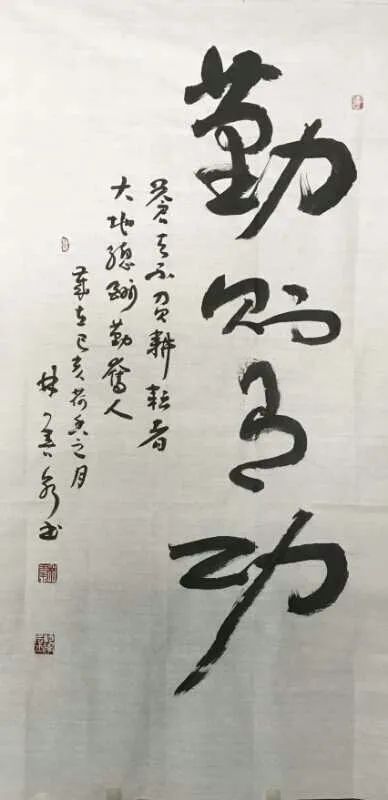 勤则有功
苍天不负耕耘者
大地总酬勤奋人
岁在己亥荷香之月
林
书